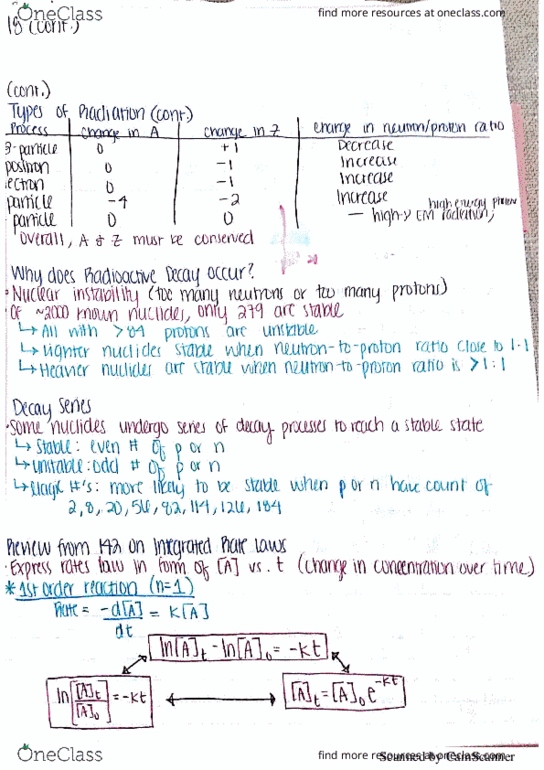 OneClass
find more resources at oneclass.com
18 (cont.)
(cont.)
Types of Radiation (cont.)
Process change in A change in Z change in neutron/proton ratio
β-particle 0 +1 Decrease
positron 0 -1 Increase
ectron 0 -1 Increase
particle -4 -2 Increase
particle 0 0 — high-γ EM radiation, high energy photon
overall, A & Z must be conserved
Why does Radioactive Decay occur?
• Nuclear instability (too many neutrons or too many protons)
• Of ~2000 known nuclides, only 279 are stable
↳ All with >84 protons are unstable
↳ Lighter nuclides stable when neutron-to-proton ratio close to 1:1
↳ Heavier nuclides are stable when neutron-to-proton ratio is >1:1
Decay Series
• Some nuclides undergo series of decay processes to reach a stable state
↳ Stable: even # of p or n
↳ unstable: odd # of p or n
↳ Magic #'s: more likely to be stable when p or n have count of
2, 8, 20, 50, 82, 114, 126, 184
Review from 142 on Integrated Rate laws
• Express rates law in form of [A] vs. t (change in concentration over time)
* 1st order reaction (n=1)
Rate = -d[A]/dt = k[A]
ln[A]t - ln[A]0 = -kt
ln [A]t/[A]0 = -kt
[A]t = [A]0 e^-kt
OneClass
find more resources at oneclass.com
Scanned by CamScanner